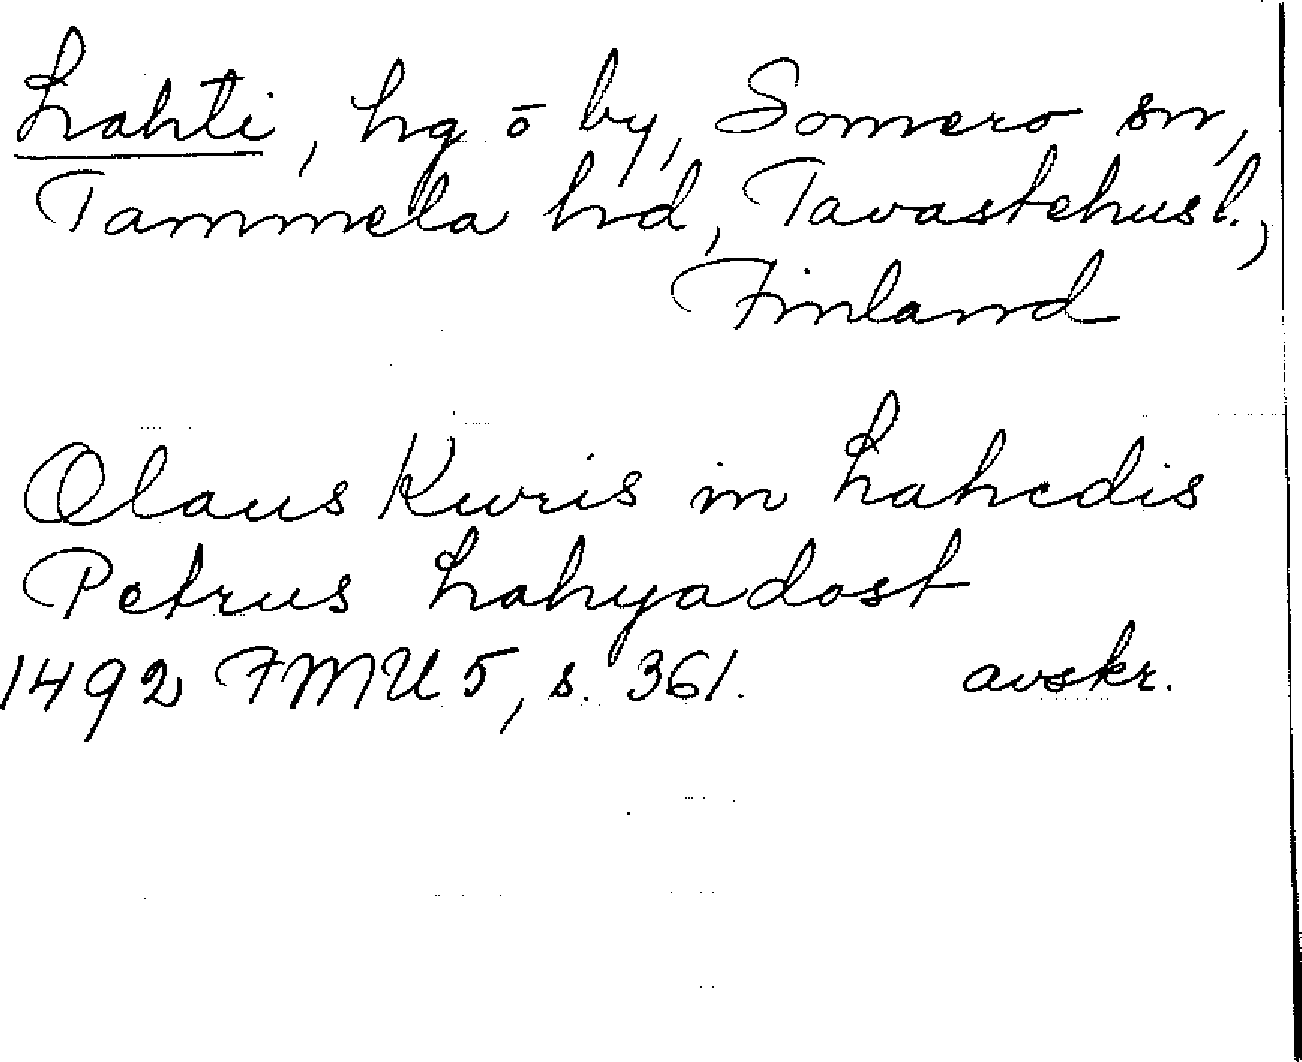 Lahti, hg ō by, Somero sn,
Tammela hd, Tavastehus l.,
Finland
Olaus Kuris in Lahedis
Petrus Lahyadast
1492 FMU 5, s. 361. avskr.